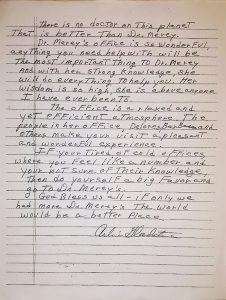 There is no doctor on This planet
That is better Than Dr. Merey.
Dr. Merey's office is so wonderful,
anything you need help with will be
The most important Thing To Dr. Merey
and with her strong knowledge, she
will do everyThing to help you. Her
wisdom is so high, She is above anyone
I have ever been To.
The office is a relaxed and
yet efficient atmosphere. The
people in her office, Delores, Barbara and
others make your visit a pleasant
and wonderful experience.
If your Tired of cold offices
where you feel like a number and
your not sure of Their Knowledge,
Then do yourself a big favor and
go To Dr. Merey's.
God Bless us all - if only we
had more Dr. Merey's The World
would be a better Place.